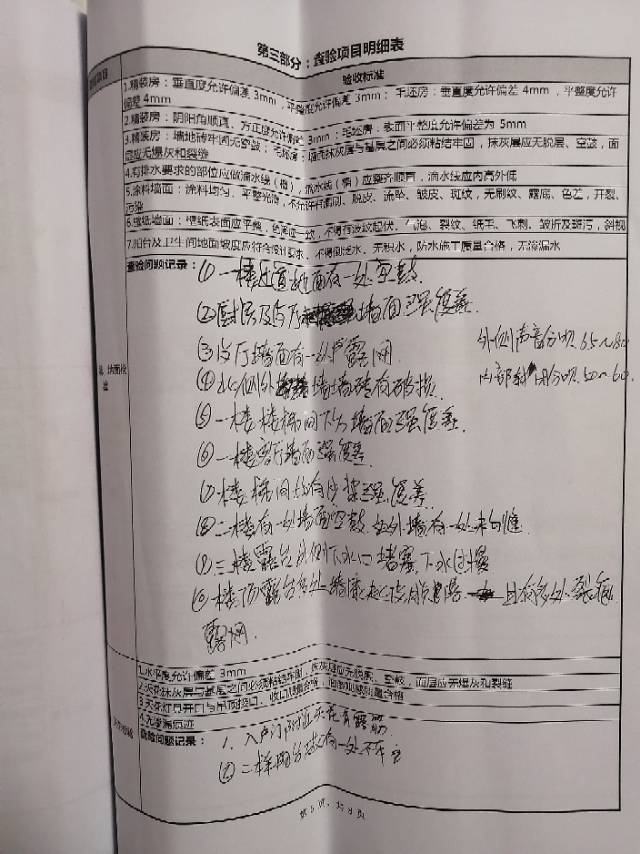 第三部分：查验项目明细表
验收标准
1.精装房：垂直度允许偏差 3mm，平整度允许偏差 3mm；毛坯房：垂直度允许偏差 4mm，平整度允许
偏差 4mm
2.精装房：阴阳角顺直、方正度允许偏差 3mm；毛坯房：表面平整度允许偏差为 5mm
3.精装房：墙地砖牢固无空鼓；毛坯房：墙面抹灰层与基层之间必须粘结牢固，抹灰层应无脱层、空鼓，面
层应无爆灰和裂缝
4.有排水要求的部位应做滴水线（槽），滴水线（槽）应整齐顺直，滴水线应内高外低
5.涂料墙面：涂料均匀、平整光滑，不允许有漏刷、脱皮、流坠、皱皮、斑纹，无刷纹、露底、色差，开裂、
污染
6.壁纸墙面：壁纸表面应平整，色泽应一致，不得有波纹起伏、气泡、裂纹、纸毛、飞刺、皱折及斑污，斜视
7.阳台及卫生间地面坡度应符合设计要求，不得倒泛水、无积水，防水施工质量合格，无渗漏水
查验问题记录：
① 一楼过道地面有一处空鼓.
② 厨房及客厅墙面强度差
③ 客厅墙面有一处露网
外侧声音分贝 65~80
④ 北侧外墙墙砖有破损
内部 分贝 50~60.
⑤ 一楼楼梯间下方墙面强度差.
⑥ 一楼客厅墙面强度差.
⑦ 楼梯间 砂浆强度差
⑧ 二楼有一处墙面空鼓 外墙有一处未勾缝
⑨ 三楼露台 侧下水口堵塞 下水
⑩ 楼顶露台 外墙漆起皮脱落 且有多处裂痕
露网.
1.水平度允许偏差 3mm
2.天花抹灰层与基层之间必须粘结牢固，抹灰层应无脱层、空鼓，面层应无爆灰和裂缝
4.无渗漏痕迹
查验问题记录：
1. 入户门附近天花有露筋
② 二楼阳台 有一处不
第 5 页，共 8 页